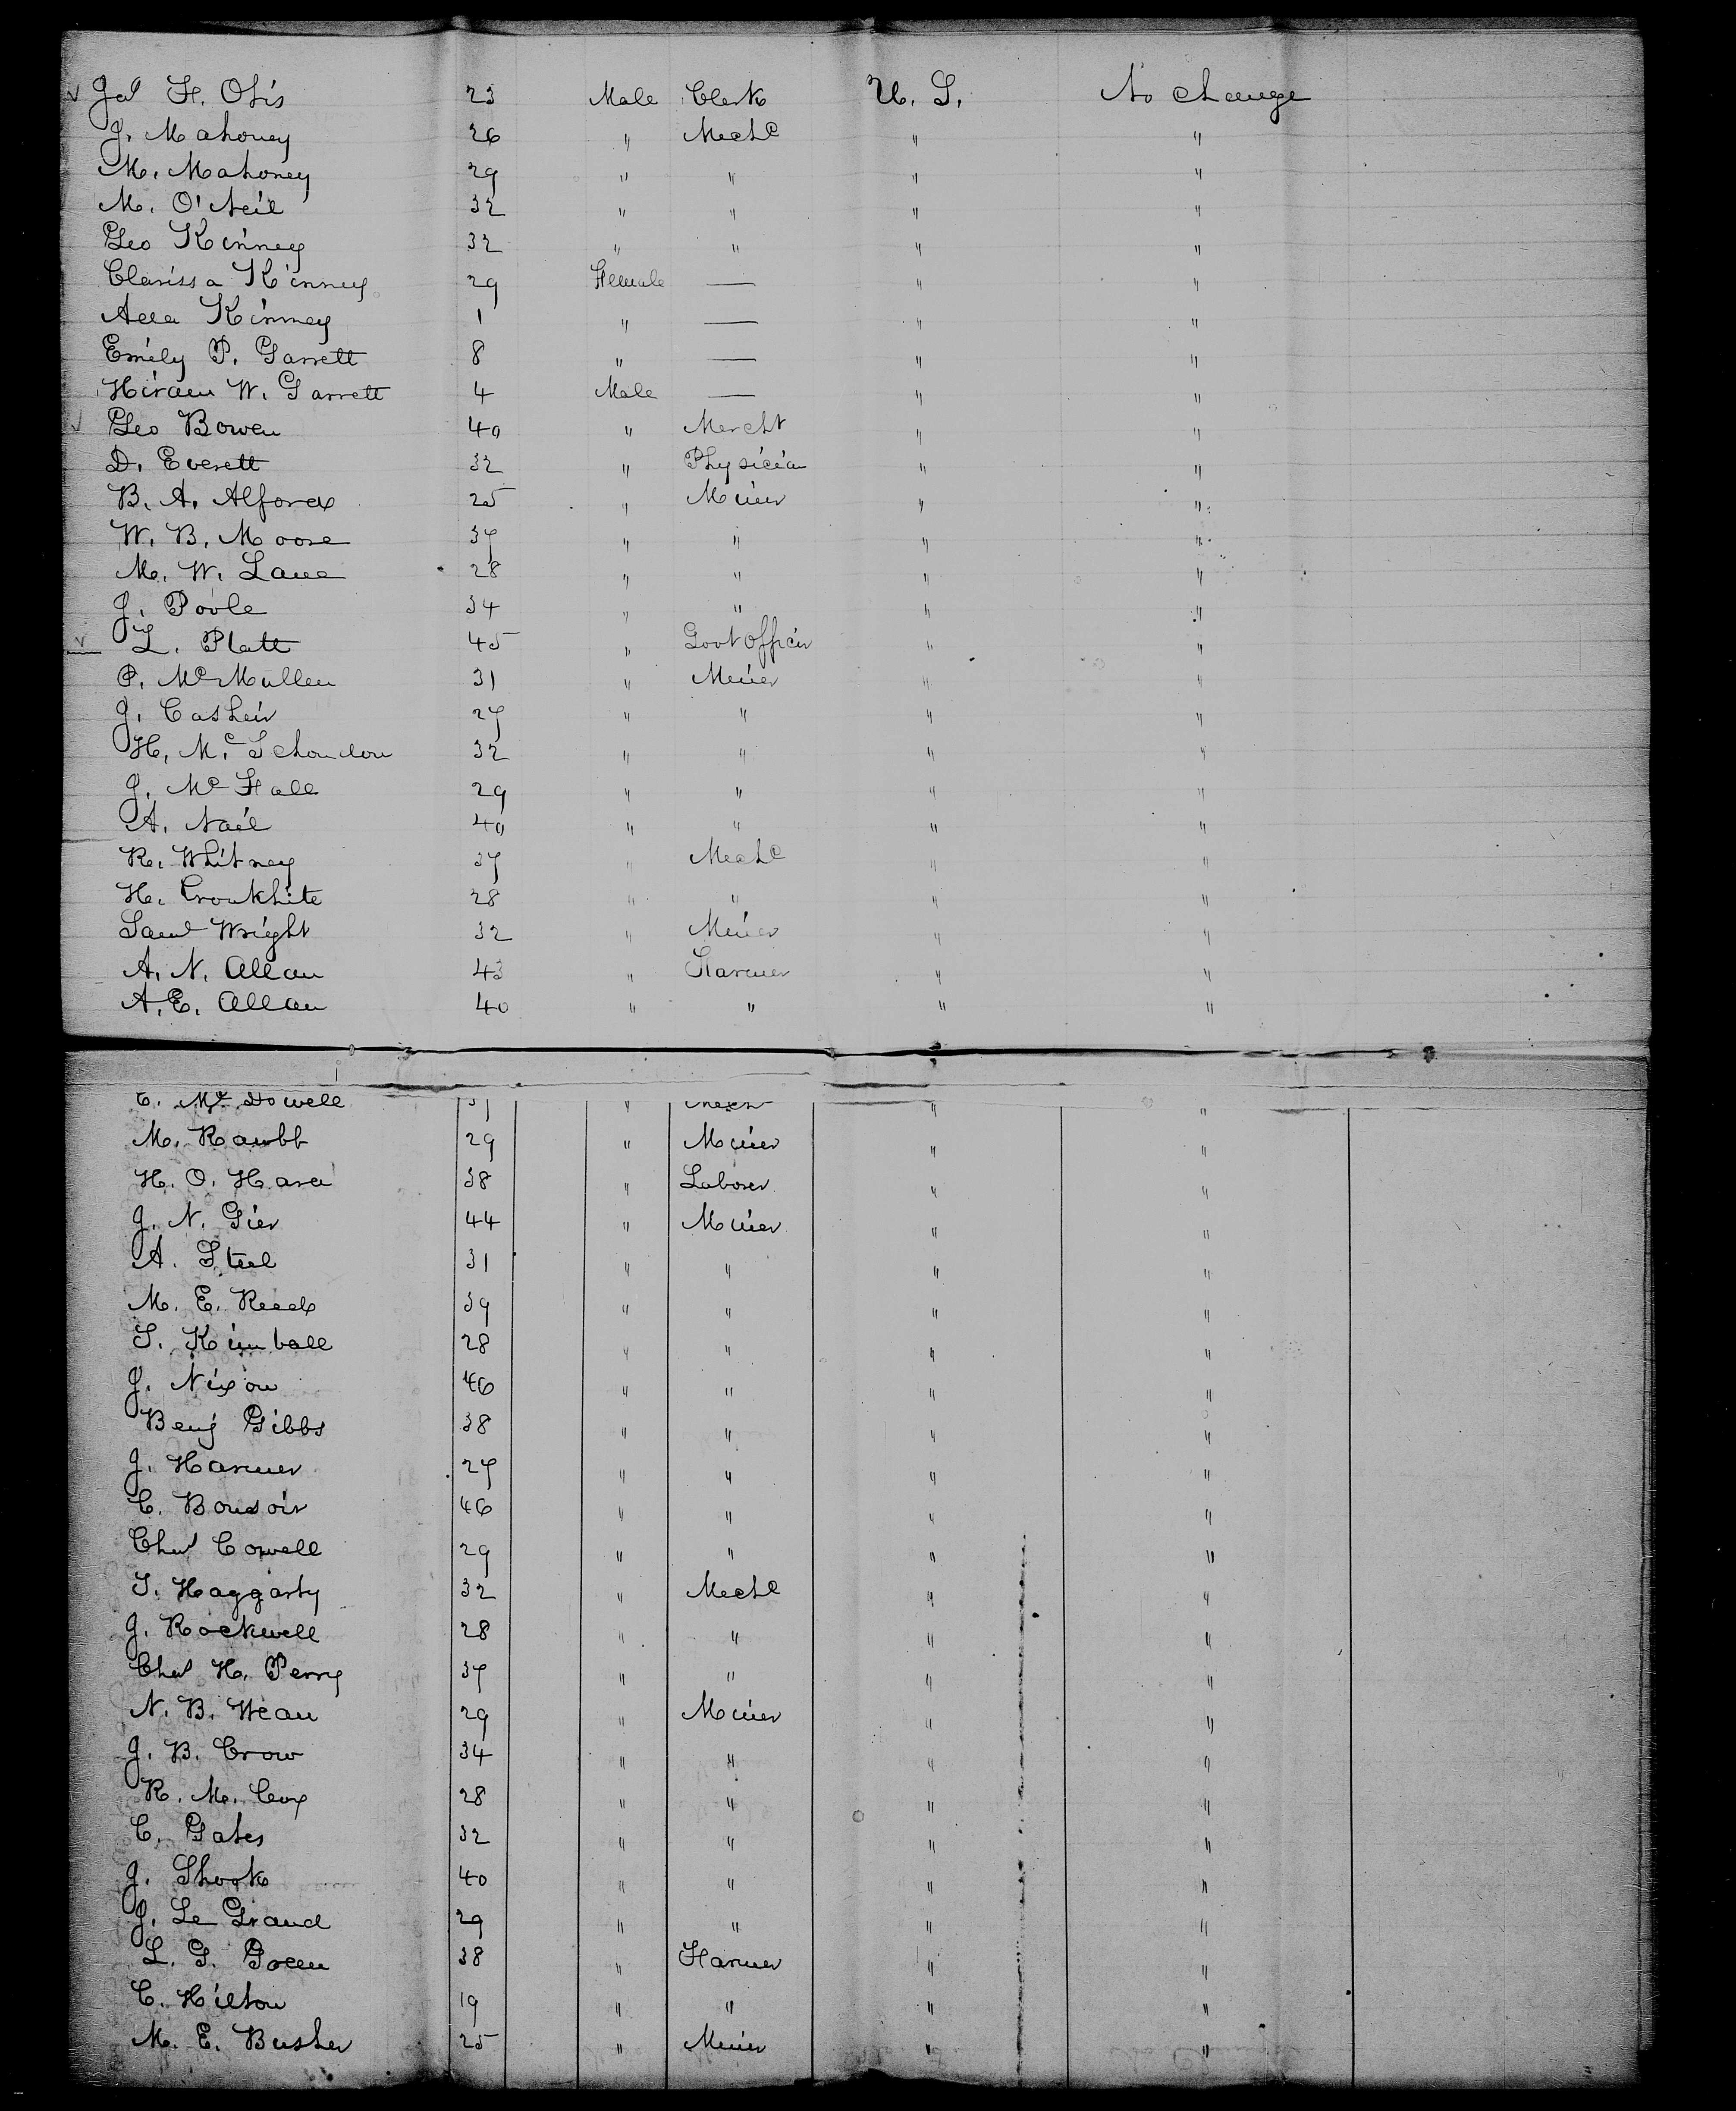 Jas H. Otis 23 Male Clerk U. S. No change
J. Mahoney 26 " Mechc " "
M. Mahoney 29 " " " "
M. O'Neil 32 " " " "
Geo Kinney 32 " " " "
Clarissa Kinney 29 Female — " "
Kinney 1 " — " "
Emily P. Garrett 8 " — " "
Hiram W. Garrett 4 Male — " "
Geo Bowen 40 " Mercht " "
D. Everett 32 " Physician " "
B. A. Alford 25 " Miner " "
W. B. Moore 37 " " " "
M. W. Lane 28 " " " "
J. Poole 34 " " " "
L. Platt 45 " Govt Officer " "
P. McMullen 31 " Miner " "
J. Casheir 27 " " " "
H. Mc 32 " " " "
J. McHale 29 " " " "
A. Nail 40 " " " "
R. Whitney 37 " Mechc " "
H. Cronkhite 28 " " " "
Saml Wright 32 " Miner " "
A. N. Allan 43 " Farmer " "
A. E. Allan 40 " " " "
C. McDowell " " "
M. 29 " Miner " "
H. O. Hara 38 " Laborer " "
J. N. Gier 44 " Miner " "
A. Steel 31 " " " "
M. E. Reed 39 " " " "
S. Kimball 28 " " " "
J. Nixon 46 " " " "
Benj Gibbs 38 " " " "
J. Harmer 27 " " " "
C. 46 " " " "
Chas Cowell 29 " " " "
T. Haggarty 32 " Mechc " "
J. Rockwell 28 " " " "
Chas H. Perry 37 " " " "
N. B. 29 " Miner " "
J. B. Crow 34 " " " "
R. M. Cox 28 " " " "
C. Gates 32 " " " "
J. Shook 40 " " " "
J. Le Grand 29 " " " "
L. G. Green 38 " Farmer " "
C. Hilton 19 " " " "
M. E. Busher 25 " Miner " "